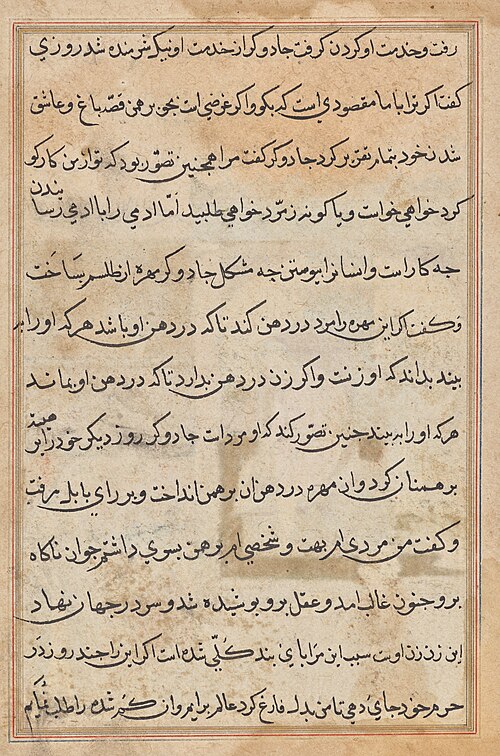 رفت و خدمت او کردن کرفت جادوکر از خدمت او نیک شرمنده شد روزی
کفت اکر ترا با ما مقصودی است که بکو و اکر غرضی است بجو برهمن قصّه باغ و عاشق
شدن خود بتمام تقریر کرد جادوکر کفت مرا همچنین تصوّر بود که تو از من کار کو
کرد خواهی خواست و یا کونه زمرّد خواهی طلبید امّا ادمی را با ادمی رسا
بندن
چه کار است و انسانرا پیوستن چه مشکل جادوکر مهره از طلسم ساخت
و کفت اکر این مهره را مرد در دهن کند تا که در دهن او باشد هر که او را به
بیند بداند که او زنت و اکر زن در دهن بدارد تا که در دهن او بماند
هر که او را به بیند چنین تصوّر کند که او مردات جادوکر روز دیکر خود را بر
برهمنان کرد و ان مهره در دهن ان برهمن انداخت و بر رای بابل رفت
و کفت من مردی ام بهت و شخصی ام برهمن بسوی داشتم جوان ناکاه
برو جنون غالب امد و عقل برو پوشیده شد و سر در جهان نهاد
این زن زن اوت سبب این مرا پای بند کلّی شده است اکر این را چند روز در
حرم خود جای دهی تا من بدل فارغ کرد عالم برایم و ان کم شده را طلب نمایم